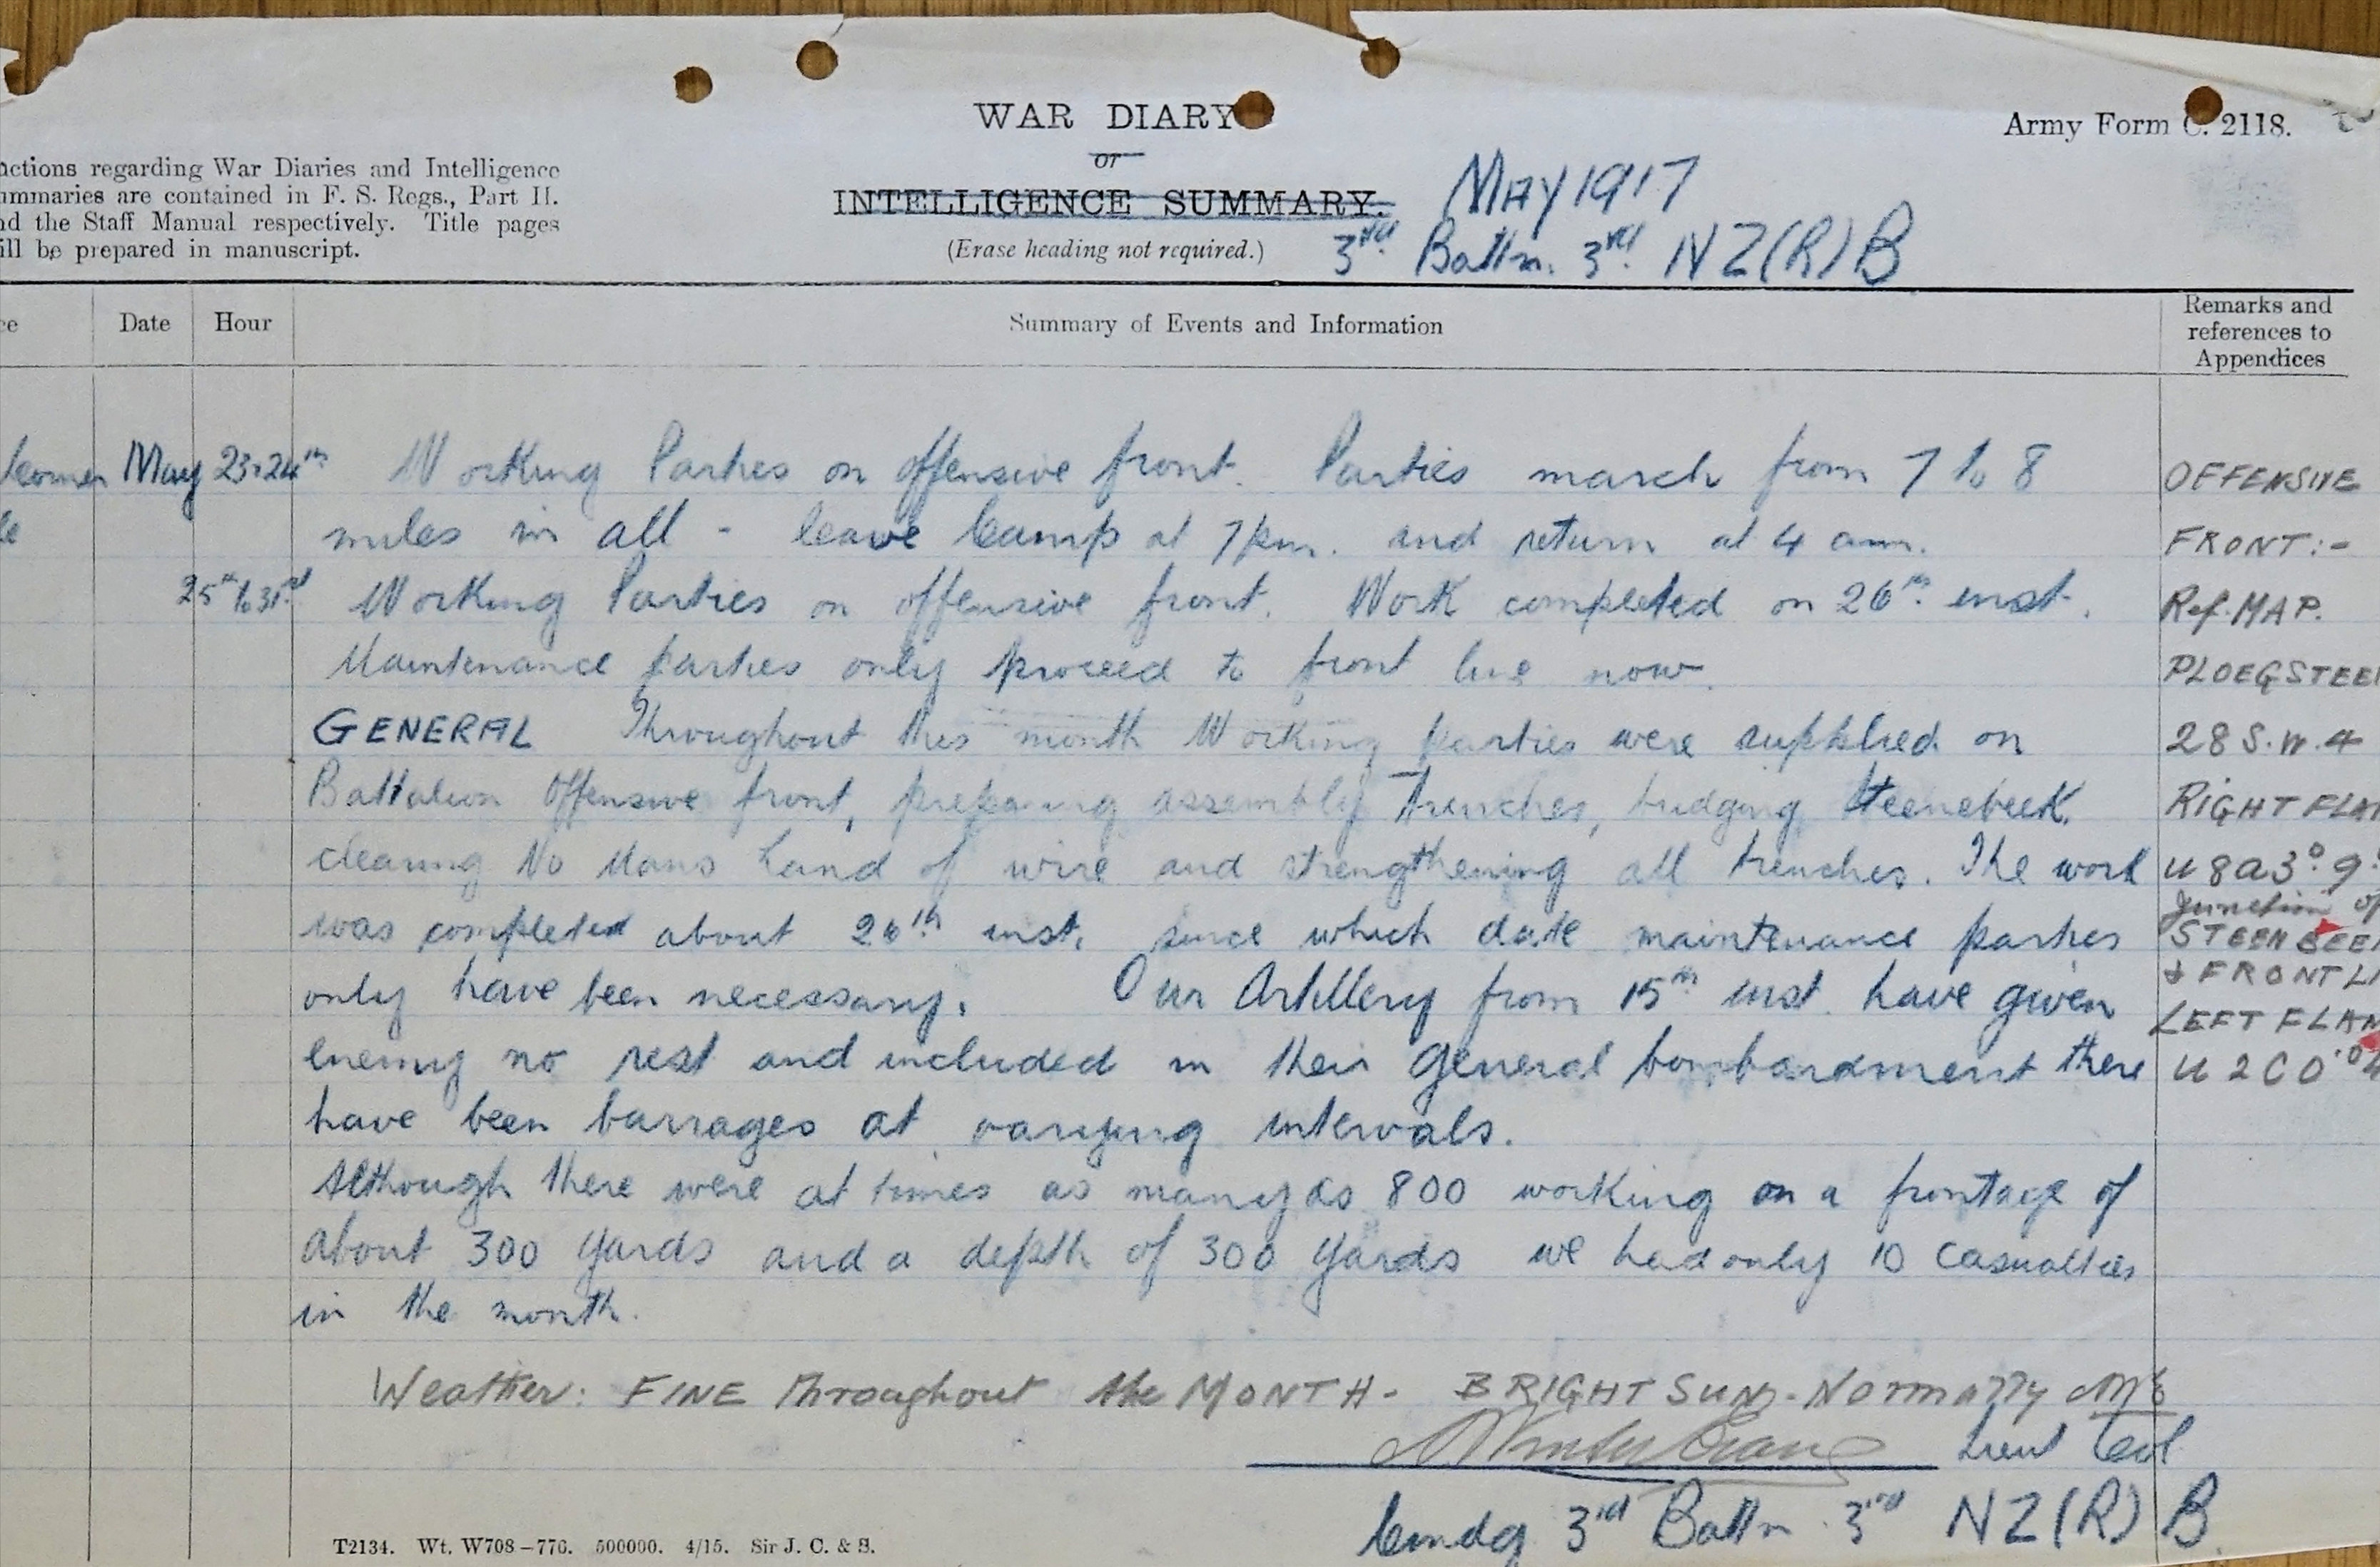 WAR DIARY
or
INTELLIGENCE SUMMARY.
(Erase heading not required.)
Army Form C. 2118.
MAY 1917
3rd Battn. 3rd NZ(R)B
uctions regarding War Diaries and Intelligence
ummaries are contained in F. S. Regs., Part II.
nd the Staff Manual respectively. Title pages
ill be prepared in manuscript.
ce Date Hour Summary of Events and Information Remarks and references to Appendices
May 23.24th Working Parties on offensive front. Parties march from 7 to 8
miles in all - leave Camp at 7 pm. and return at 4 am.
25th to 31st Working Parties on offensive front. Work completed on 26th inst.
Maintenance parties only proceed to front line now.
GENERAL Throughout this month Working parties were supplied on
Battalion Offensive front, preparing assembly Trenches, bridging Steenebeek,
clearing No Mans Land of wire and strengthening all trenches. The work
was completed about 26th inst. since which date maintenance parties
only have been necessary. Our Artillery from 15th inst. have given
enemy no rest and included in their general bombardment there
have been barrages at varying intervals.
Although there were at times as many as 800 working on a frontage of
about 300 yards and a depth of 300 yards we had only 10 casualties
in the month.
Weather: FINE throughout the MONTH - BRIGHT SUN - Normally
Lieut Col
Cmdg 3rd Battn. 3rd NZ(R)B.
OFFENSIVE
FRONT:-
Ref. MAP.
PLOEGSTEE
28 S.W.4
RIGHT FLA
U 8 a 3
Junction of
STEENBEE
& FRONT LI
LEFT FLAN
U 2 C 0
T2134. Wt. W708-776. 500000. 4/15. Sir J. C. & S.